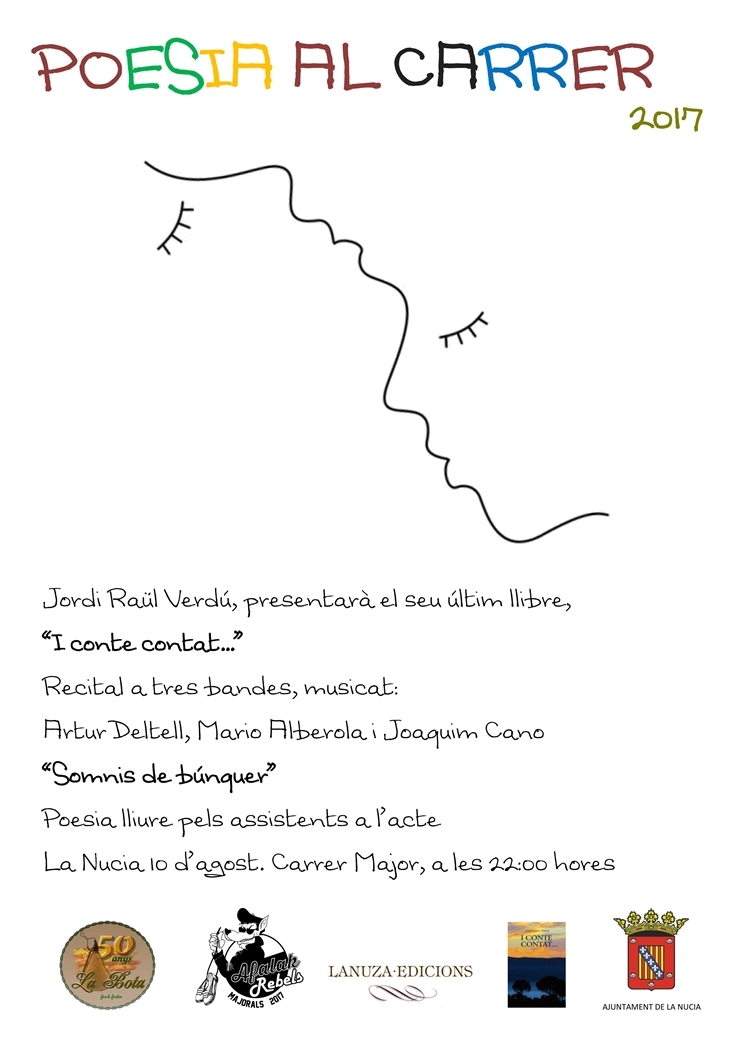 POESIA AL CARRER
2017
Jordi Raül Verdú, presentarà el seu últim llibre,
“I conte contat...”
Recital a tres bandes, musicat:
Artur Deltell, Mario Alberola i Joaquim Cano
“Somnis de búnquer”
Poesia lliure pels assistents a l’acte
La Nucia 10 d’agost. Carrer Major, a les 22:00 hores
50
anys
La Bota
Afalak
Rebels
MAJORALS 2017
LANUZA·EDICIONS
I CONTE
CONTAT...
AJUNTAMENT DE LA NUCIA